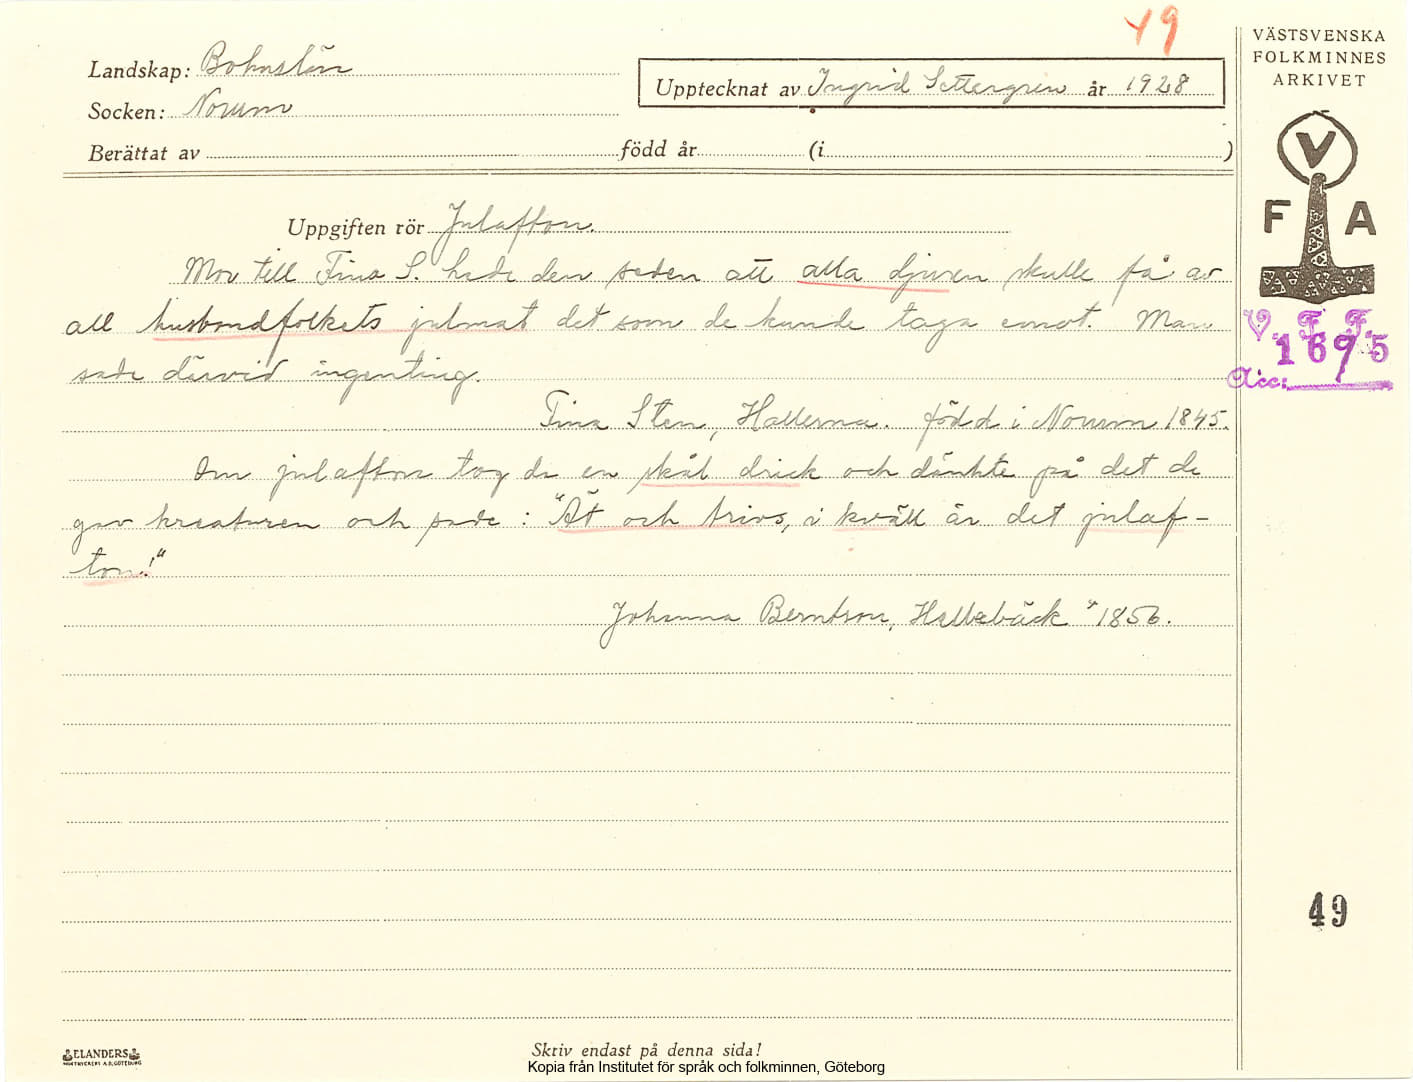 49
VÄSTSVENSKA
FOLKMINNES
ARKIVET
Landskap: Bohuslän
Upptecknat av Ingrid Settergren år 1928
Socken: Norum
Berättat av född år (i )
V
F A
Uppgiften rör Julafton.
Mor till Tina S. hade den seden att alla djuren skulle få av
all husbondfolkets julmat det som de kunde taga emot. Man
sade därvid ingenting.
V. F. F.
1695
Acc:
Tina Sten, Hallerna. född i Norum 1845.
Om julafton tog de en skål drick och dänkte på det de
gav kreaturen och sade: "Ät och trivs, i kväll är det julaf-
ton!"
Johanna Berntson, Hallebäck " 1856.
49
ELANDERS
Skriv endast på denna sida!
Kopia från Institutet för språk och folkminnen, Göteborg